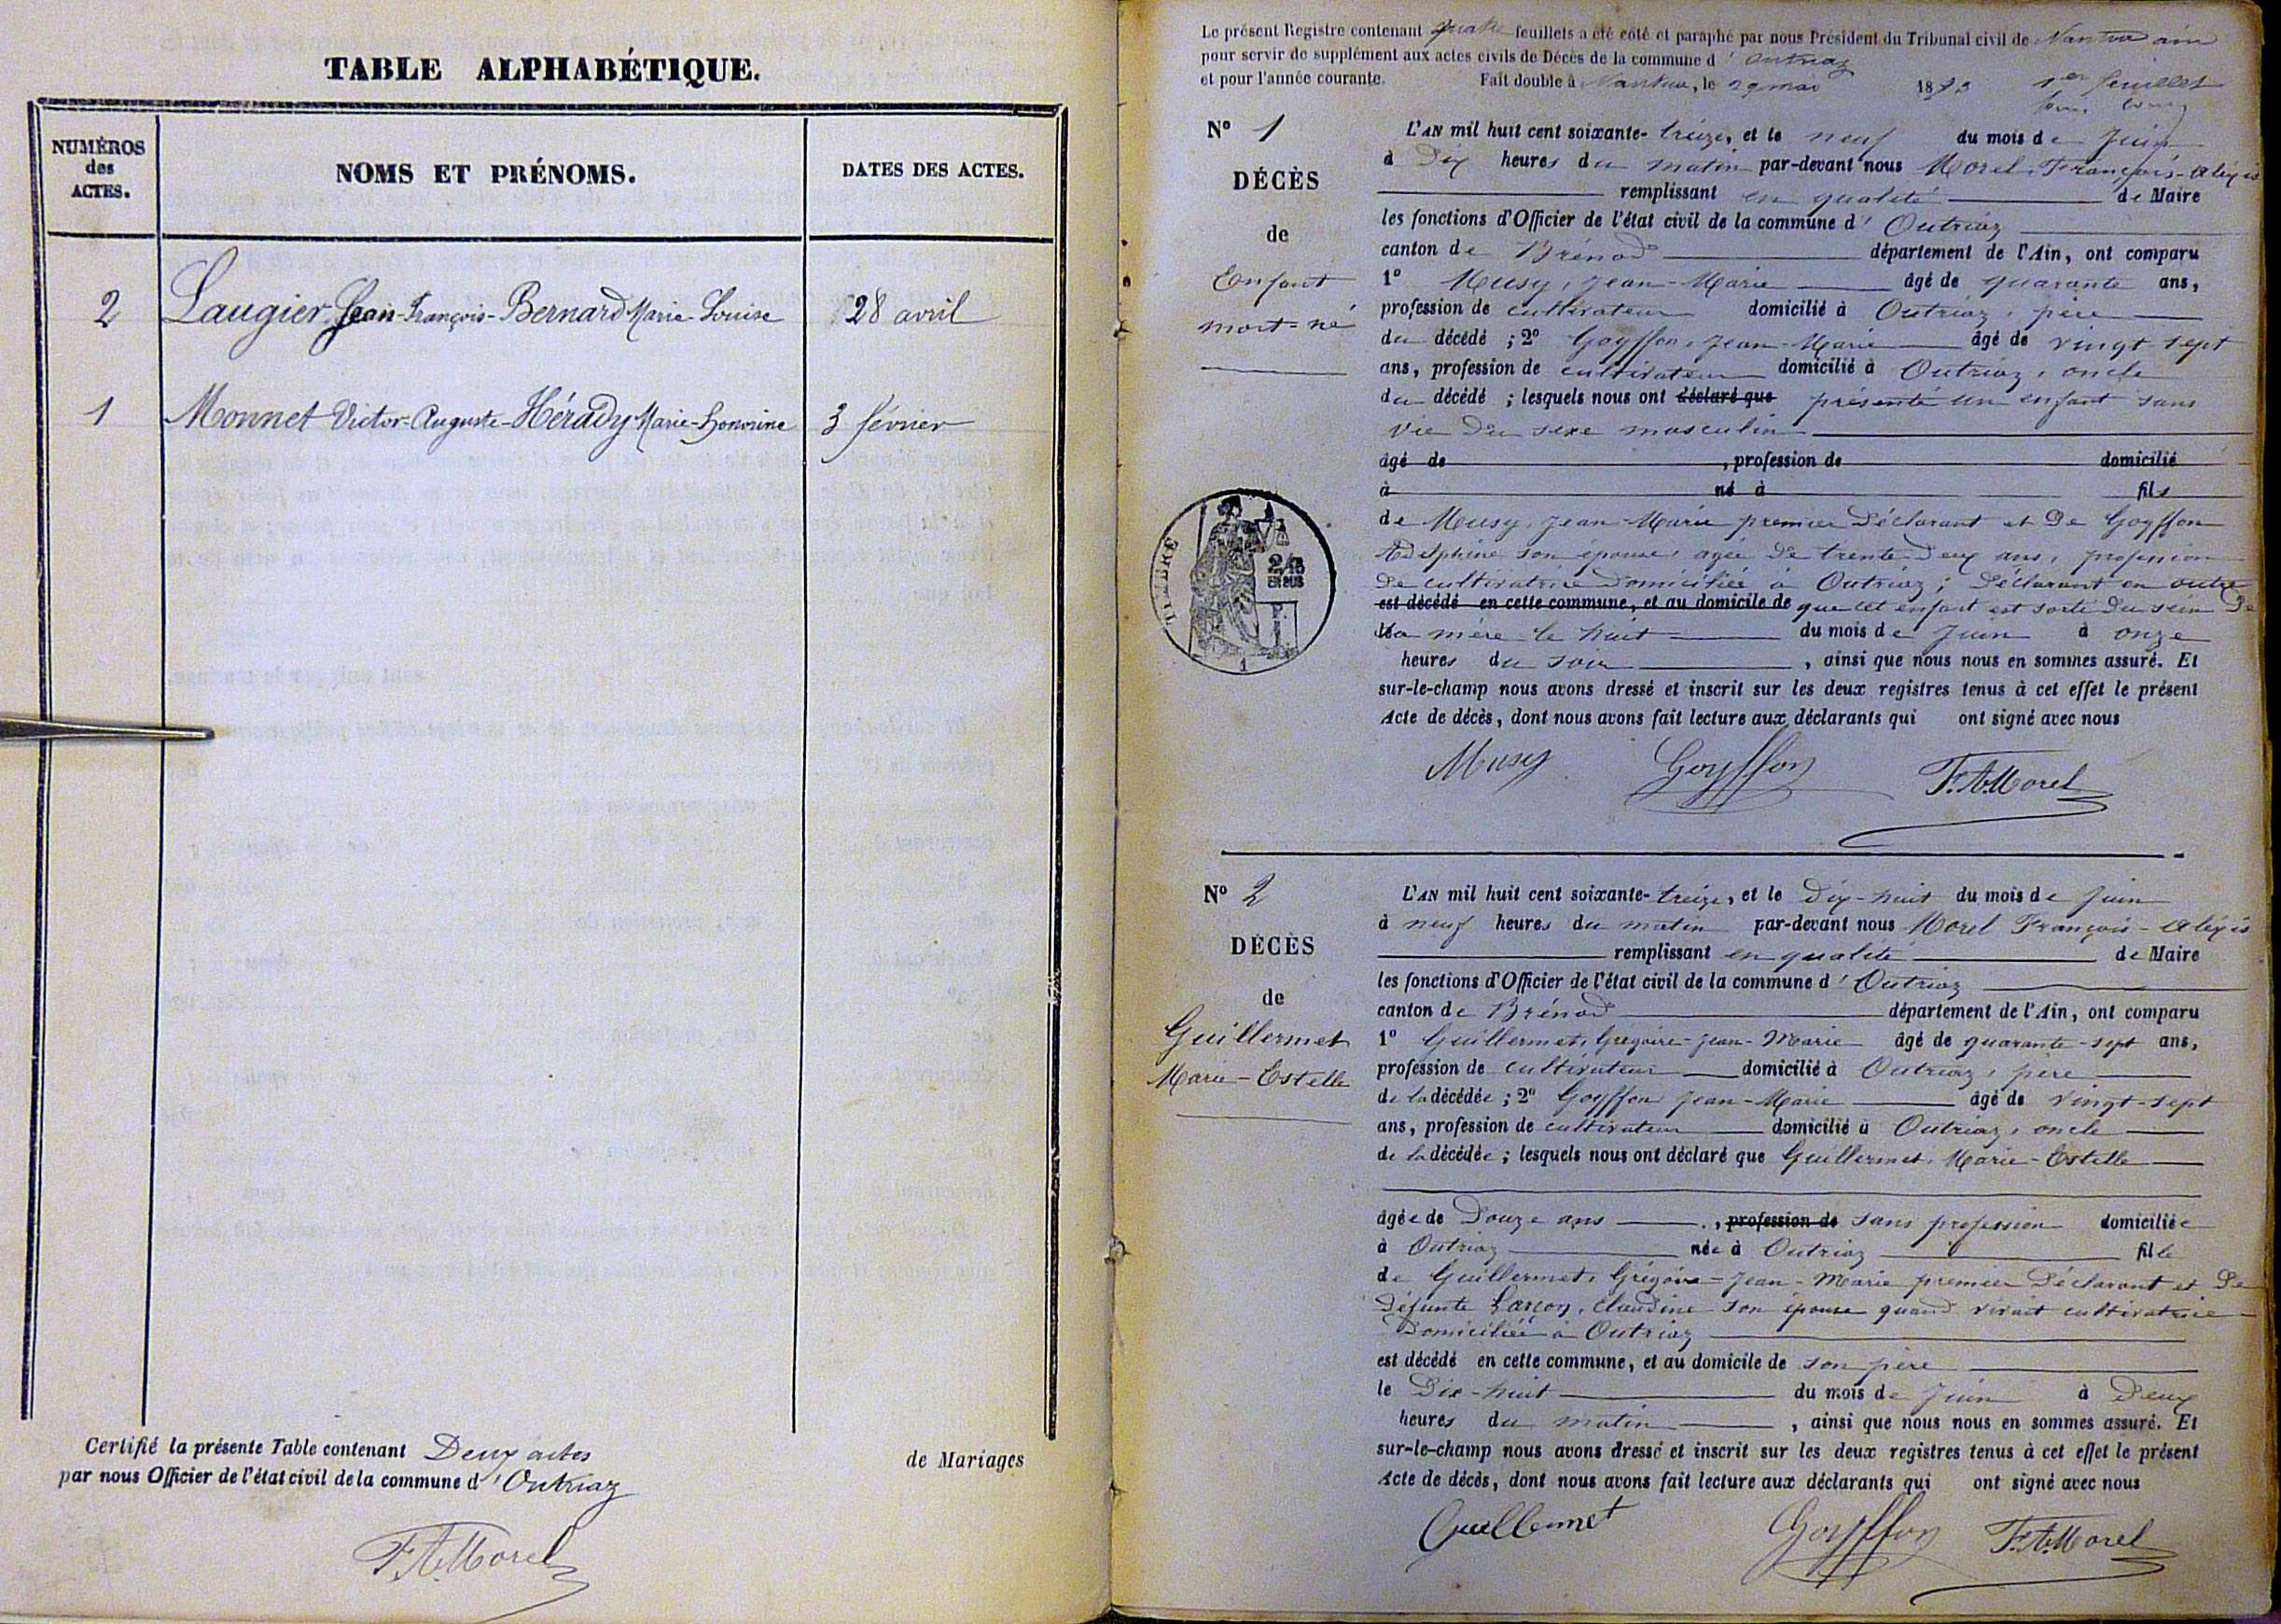 TABLE ALPHABÉTIQUE.
NUMÉROS
des
ACTES.
NOMS ET PRÉNOMS.
DATES DES ACTES.
2 Laugier Jean-François-Bernard Marie-Louise 28 avril
1 Monnet Victor-Auguste-Hérady Marie-Honorine 3 février
Certifié la présente Table contenant Deux actes de Mariages
par nous Officier de l'état civil de la commune d'Outriaz
F. A. Morel
Le présent Registre contenant quatre feuillets a été coté et paraphé par nous Président du Tribunal civil de Nantua ain
pour servir de supplément aux actes civils de Décès de la commune d'Outriaz
et pour l'année courante. Fait double à Nantua, le 29 mai 1873 1er feuillet
N° 1
DÉCÈS
de
Enfant
mort-né
TIMBRE
2/10
EN SUS
1
L'AN mil huit cent soixante-treize, et le neuf du mois de Juin
à Dix heures du matin par-devant nous Morel, François-Alexis
remplissant en qualité de Maire
les fonctions d'Officier de l'état civil de la commune d'Outriaz
canton de Brénod département de l'Ain, ont comparu
1° Musy, Jean-Marie âgé de quarante ans,
profession de cultivateur domicilié à Outriaz, père
du décédé ; 2° Goyffon, Jean-Marie âgé de vingt-sept
ans, profession de cultivateur domicilié à Outriaz, oncle
du décédé ; lesquels nous ont déclaré que présenté un enfant sans
vie du sexe masculin
âgé de , profession de domicilié
à né à fils
de Musy, Jean-Marie premier déclarant et de Goyffon
Adelphine son épouse, agée de trente-deux ans, profession
de cultivatrice domiciliée à Outriaz ; déclarant en outre
est décédé en cette commune, et au domicile de que cet enfant est sorti du sein de
sa mère le huit du mois de Juin à onze
heures du soir , ainsi que nous nous en sommes assuré. Et
sur-le-champ nous avons dressé et inscrit sur les deux registres tenus à cet effet le présent
Acte de décès, dont nous avons fait lecture aux déclarants qui ont signé avec nous
Musy Goyffon F. A. Morel
N° 2
DÉCÈS
de
Guillermet
Marie-Estelle
L'AN mil huit cent soixante-treize, et le Dix-huit du mois de Juin
à neuf heures du matin par-devant nous Morel François-Alexis
remplissant en qualité de Maire
les fonctions d'Officier de l'état civil de la commune d'Outriaz
canton de Brénod département de l'Ain, ont comparu
1° Guillermet, Grégoire-Jean-Marie âgé de quarante-sept ans,
profession de cultivateur domicilié à Outriaz, père
de la décédée ; 2° Goyffon Jean-Marie âgé de vingt-sept
ans, profession de cultivateur domicilié à Outriaz, oncle
de la décédée ; lesquels nous ont déclaré que Guillermet, Marie-Estelle
âgée de Douze ans , profession de sans profession domiciliée
à Outriaz née à Outriaz fille
de Guillermet, Grégoire-Jean-Marie premier déclarant et de
défunte Larçon, Claudine son épouse quand vivait cultivatrice
Domiciliée à Outriaz
est décédé en cette commune, et au domicile de son père
le Dix-huit du mois de Juin à Deux
heures du matin , ainsi que nous nous en sommes assuré. Et
sur-le-champ nous avons dressé et inscrit sur les deux registres tenus à cet effet le présent
Acte de décès, dont nous avons fait lecture aux déclarants qui ont signé avec nous
Guillermet Goyffon F. A. Morel